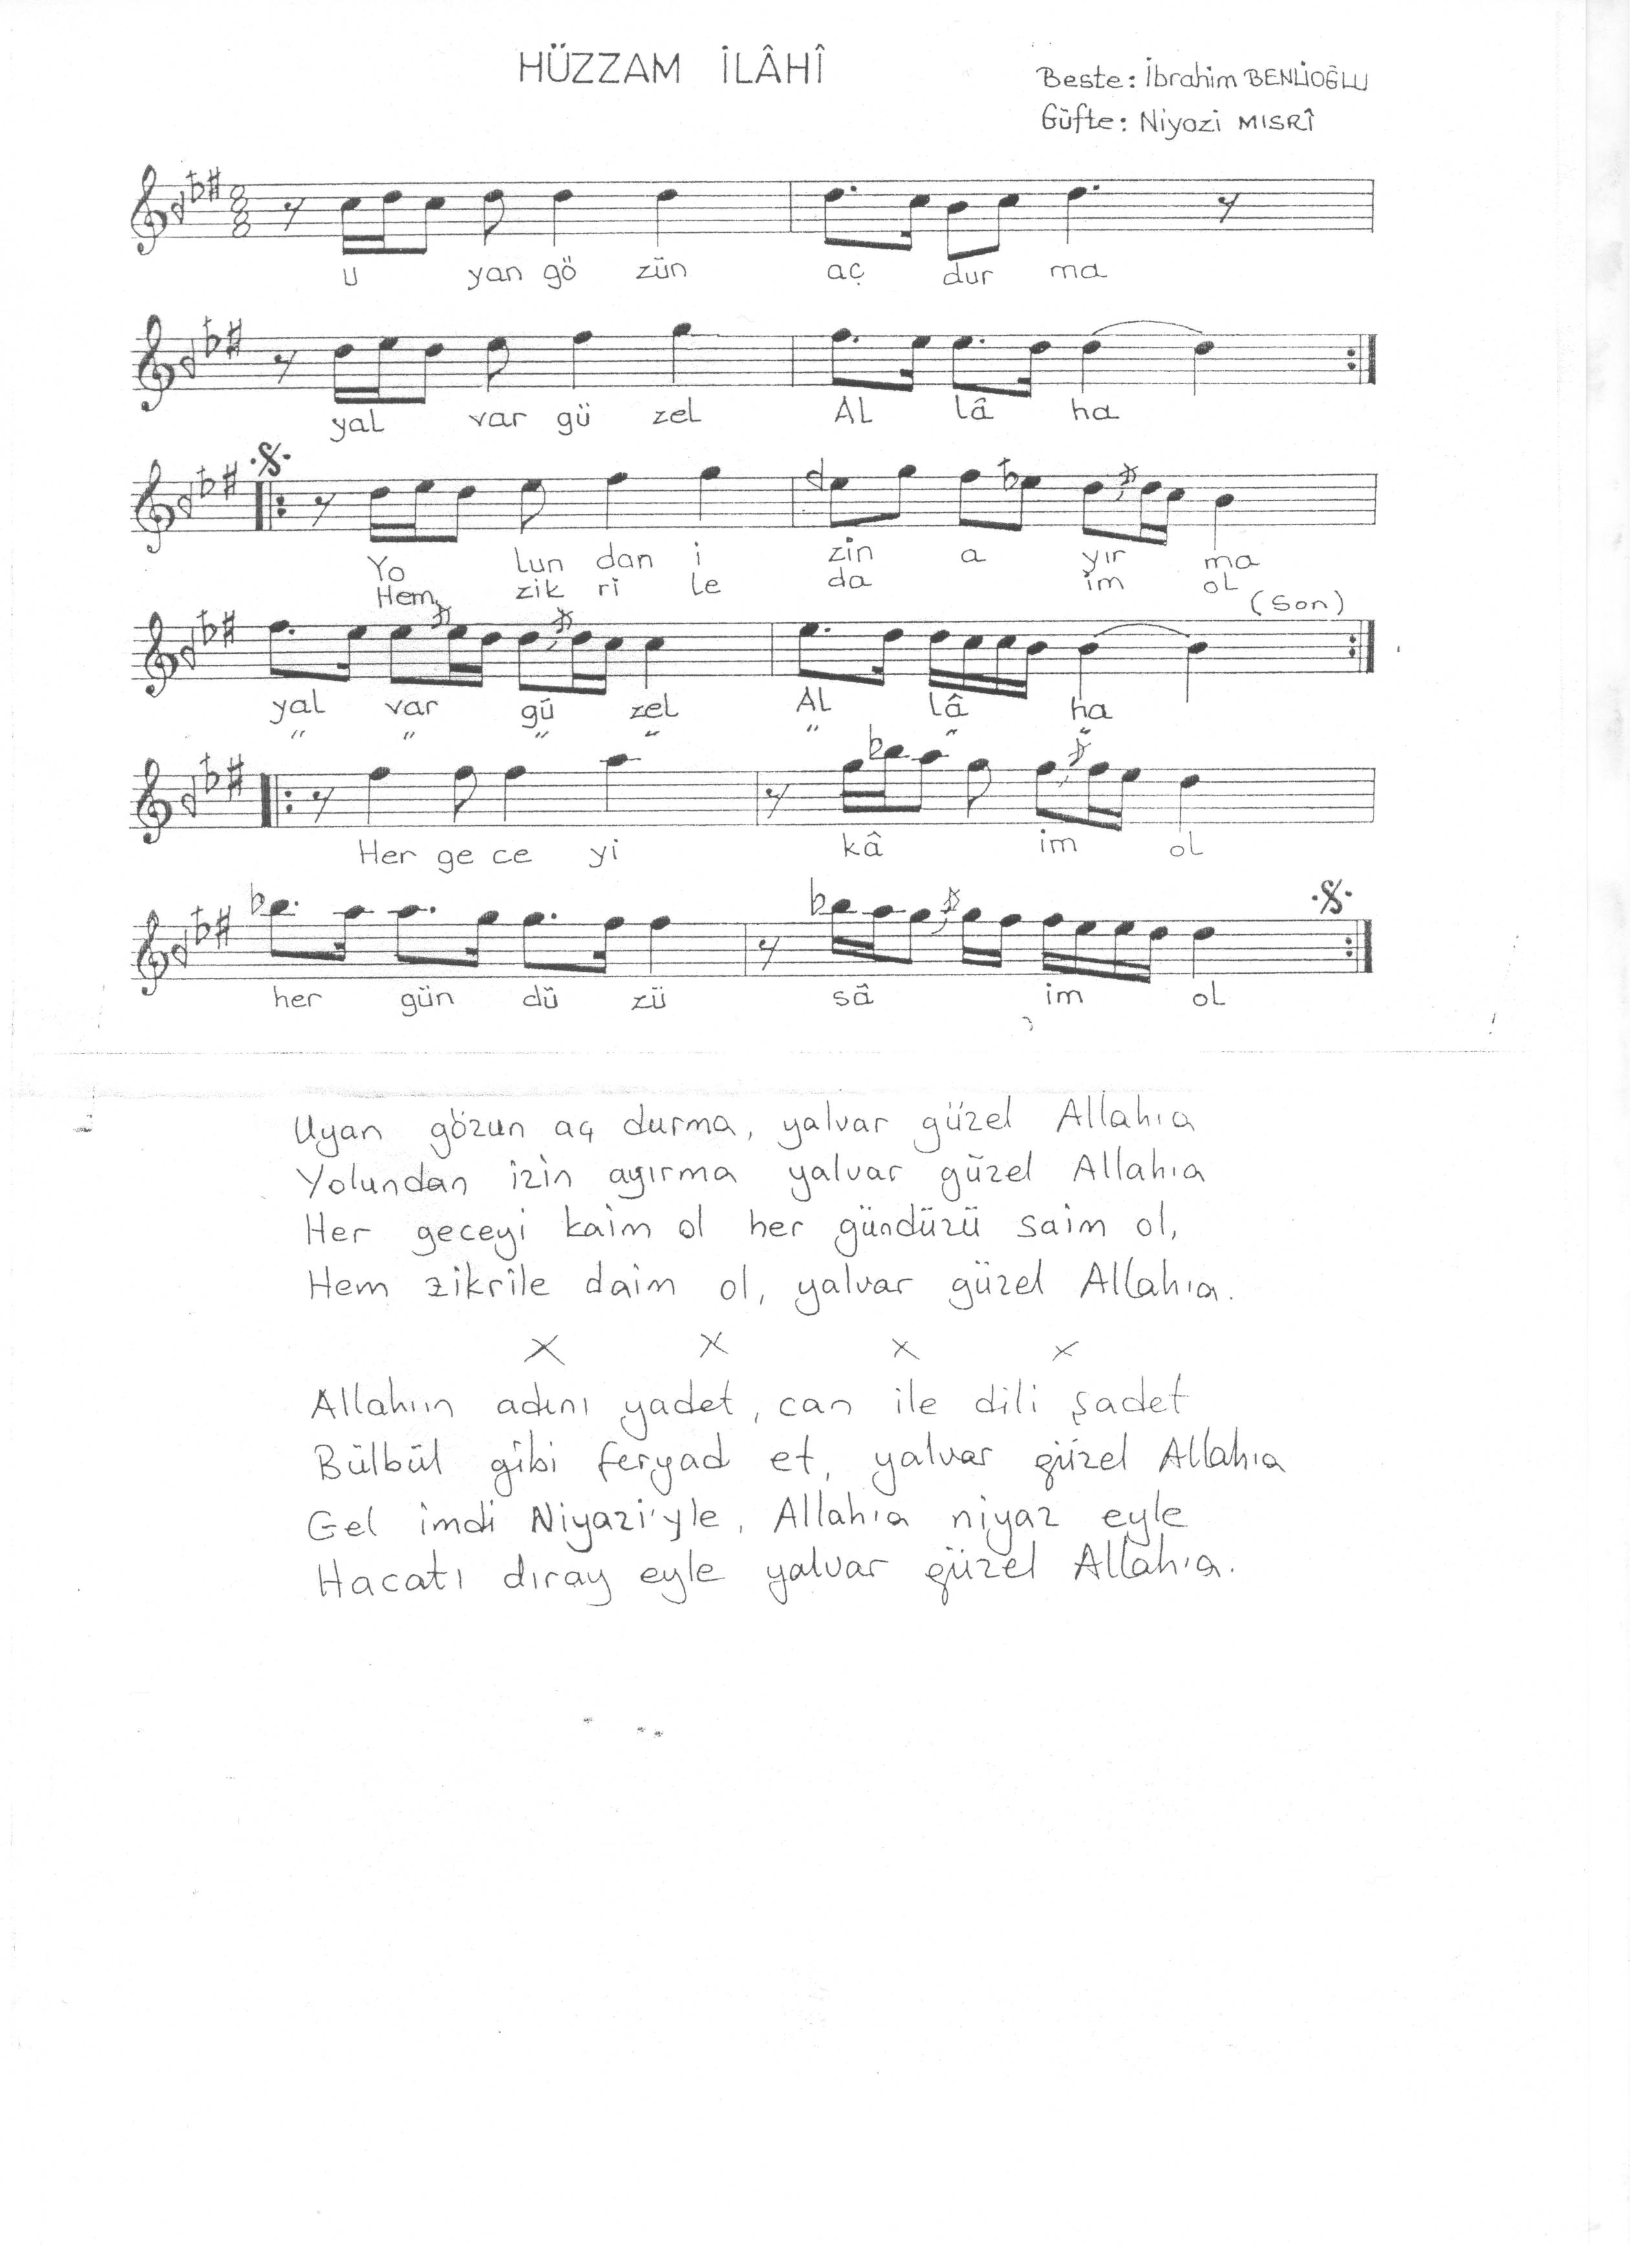 HÜZZAM İLÂHÎ
Beste: İbrahim BENLİOĞLU
Güfte: Niyazi MISRÎ
U yan gö zün aç dur ma
yal var gü zel AL lâ ha
Yo lun dan i zin a yır ma
Hem zik ri le da im oL
(Son)
yal var gü zel AL lâ ha
" " " " " " "
Her ge ce yi kâ im oL
her gün dü zü sâ im oL
Uyan gözun aç durma, yalvar güzel Allahıa
Yolundan izin ayırma yalvar güzel Allahıa
Her geceyi kaim ol her gündüzü saim ol,
Hem zikrile daim ol, yalvar güzel Allahıa.
X X X X
Allahıın adını yadet, can ile dili şadet
Bülbül gibi feryad et, yalvar güzel Allahıa
Gel imdi Niyazi'yle, Allahıa niyaz eyle
Hacatı dıray eyle yalvar güzel Allahıa.